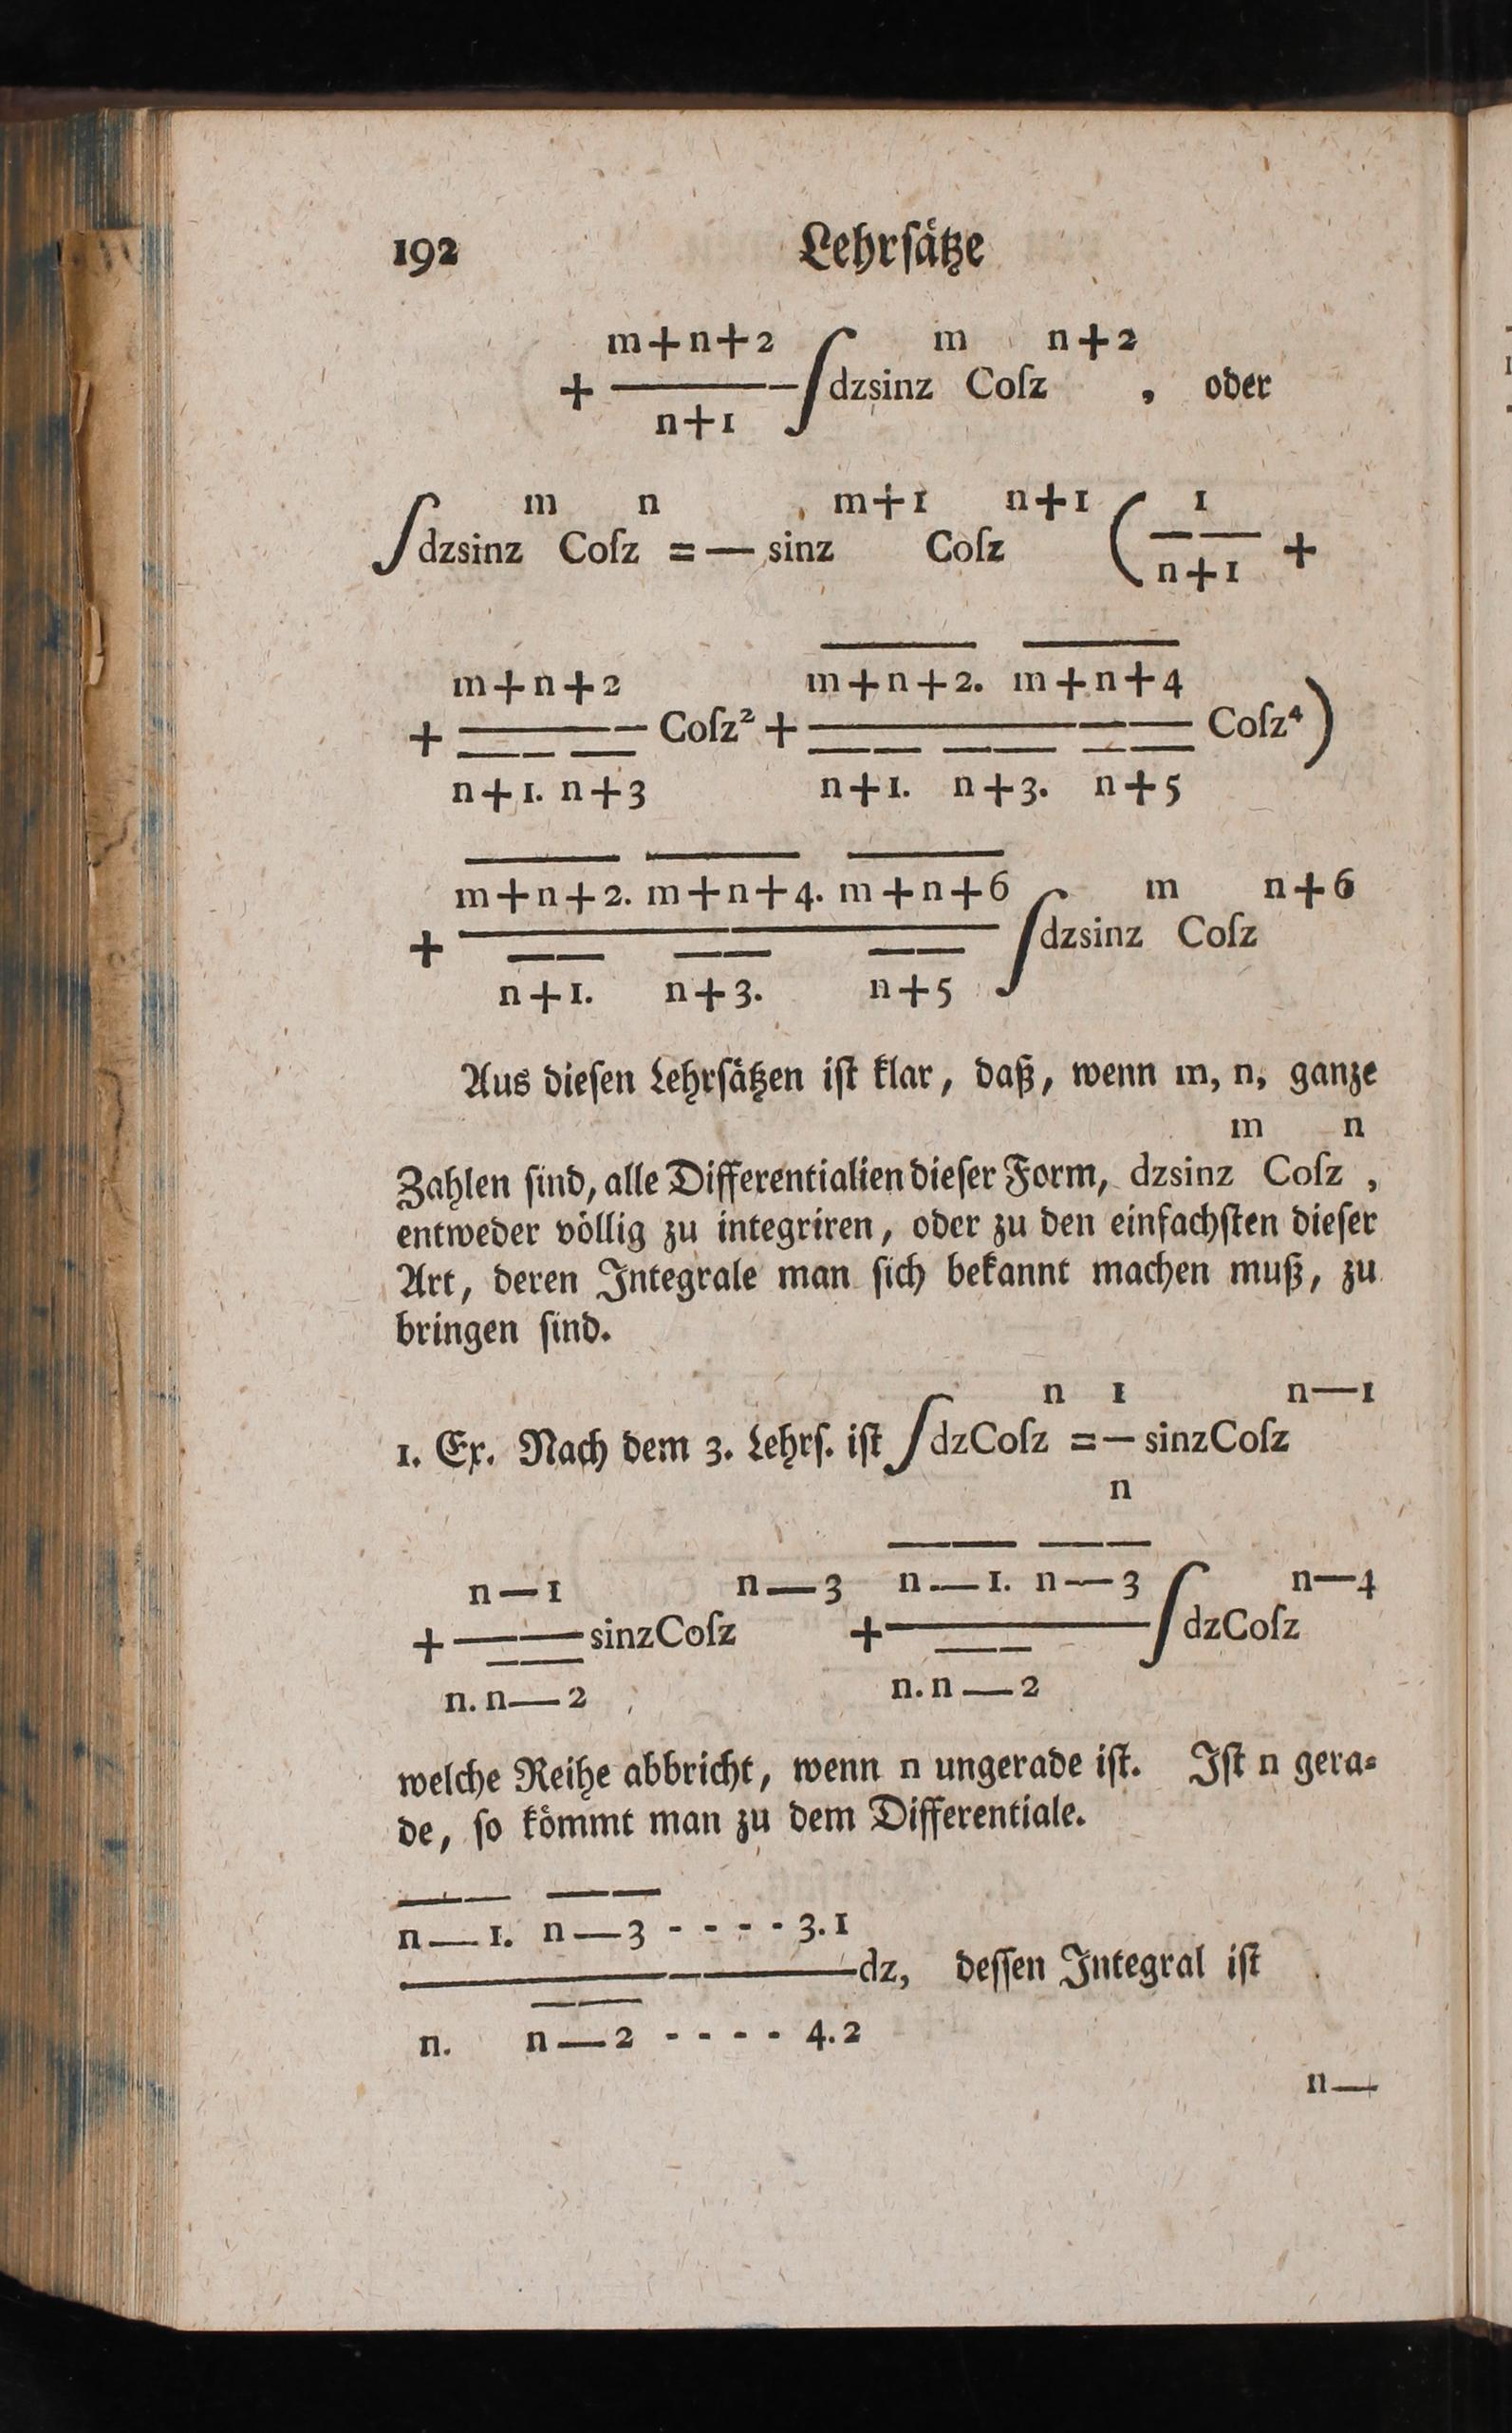 192 Lehrſätze
m+n+2 m n+2
+ ——— ∫dzsinz Coſz , oder
n+1
m n m+1 n+1 1
∫dzsinz Coſz =— sinz Coſz ( —— +
n+1
m+n+2 m+n+2. m+n+4
+ ——— Coſz² + ——— Coſz⁴)
n+1. n+3 n+1. n+3. n+5
m+n+2. m+n+4. m+n+6 m n+6
+ ——— ∫dzsinz Coſz
n+1. n+3. n+5
Aus dieſen Lehrſätzen iſt klar, daß, wenn m, n, ganze
m n
Zahlen ſind, alle Differentialien dieſer Form, dzsinz Coſz ,
entweder völlig zu integriren, oder zu den einfachſten dieſer
Art, deren Integrale man ſich bekannt machen muß, zu
bringen ſind.
n 1 n—1
1. Ex. Nach dem 3. Lehrſ. iſt ∫dzCoſz =— sinzCoſz
n
n—1 n—3 n—1. n—3 n—4
+ ——— sinzCoſz + ——— ∫dzCoſz
n.n—2 n.n—2
welche Reihe abbricht, wenn n ungerade iſt. Iſt n gera⸗
de, ſo kömmt man zu dem Differentiale.
n—1. n—3 - - - - 3.1
———dz, deſſen Integral iſt
n. n—2 - - - - 4.2
n—